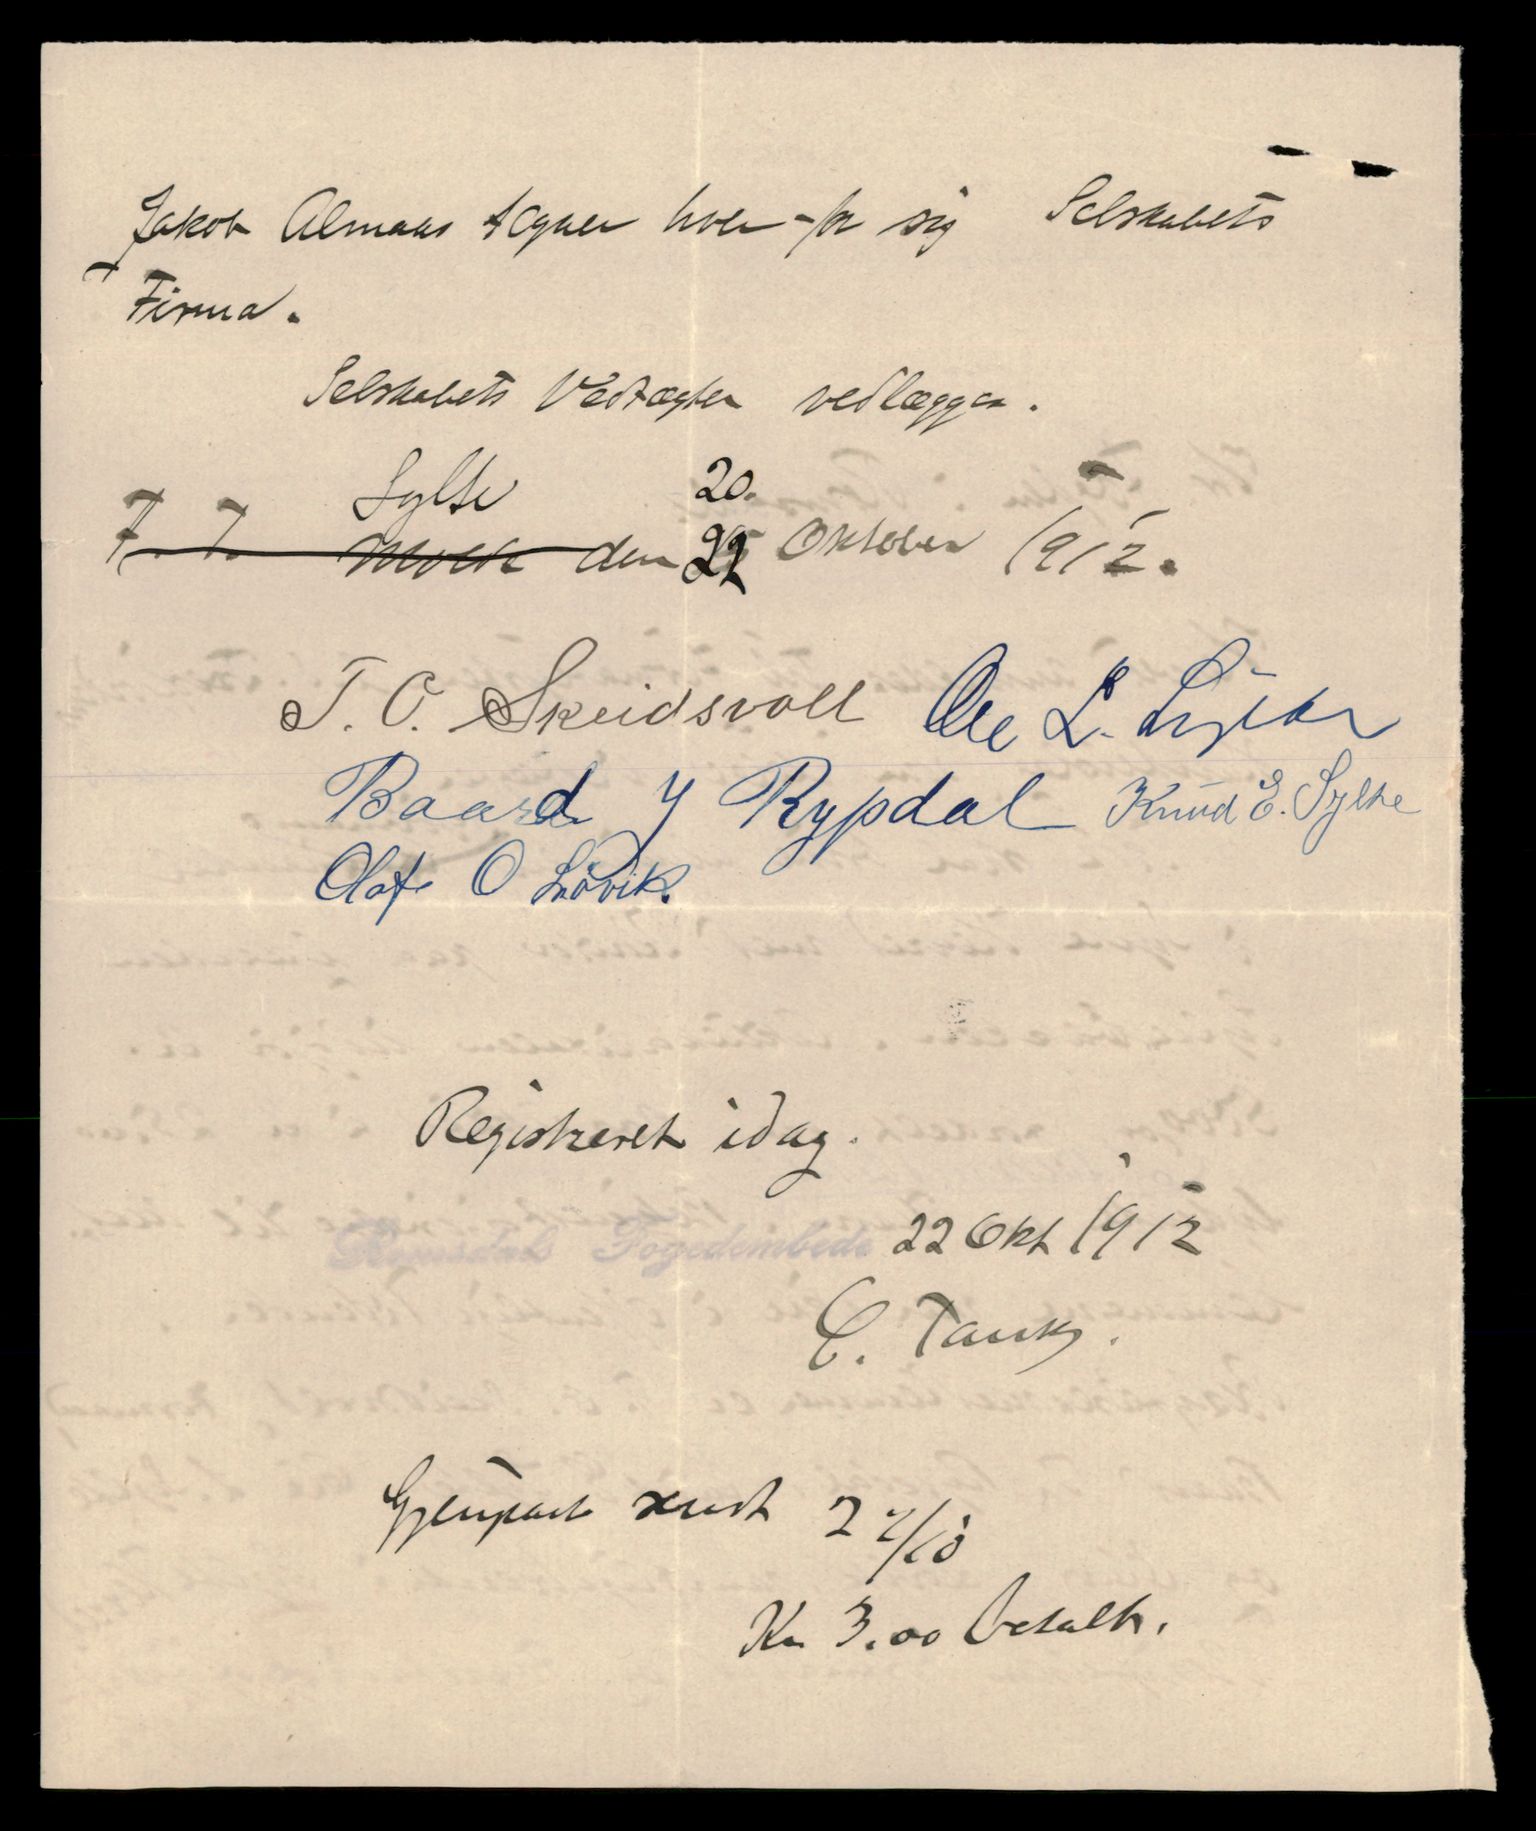 Jakob Almaas tegner hver for sig Selskabets
Firma.
Selskabets Vedtægter vedlægges.
Sylte 20.
T. T. Molde den 22 Oktober 1912.
T. O. Skeidsvoll Ole L. Sylte
Baard J Rypdal Knud E. Sylte
Olaf O Løvik.
Registreret idag.
Romsdals Fogedembede 22 Okt 1912
C. Tank.
Gjenpart sendt 22/10
Kr 3.00 betalt.